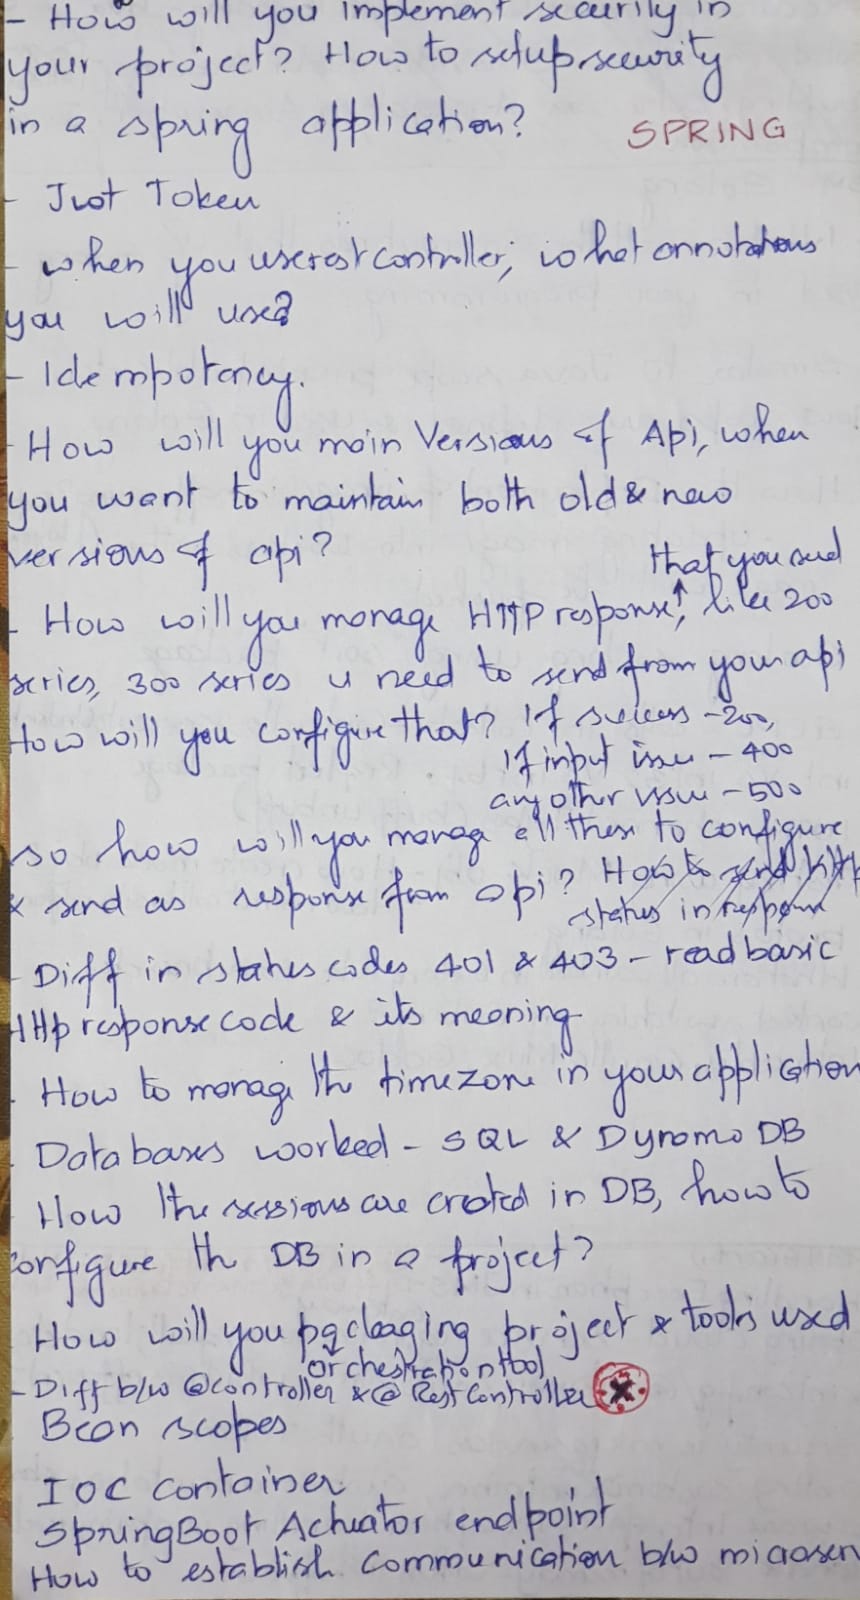 - How will you implement security in
your project? How to setup security
in a spring application?
SPRING
- Jwt Token
- when you use rest controller, what annotations
you will use?
- Idempotency.
- How will you main Versions of Api, when
you want to maintain both old & new
versions of api?
that you send
- How will you manage HTTP response, like 200
series, 300 series u need to send from your api
How will you configure that? If success - 200,
If input issue - 400
any other issue - 500
so how will you manage all these to configure
& send as response from api? How to send http
status in response
- Diff in status codes 401 & 403 - read basic
Http response code & its meaning
- How to manage the timezone in your application
- Databases worked - SQL & Dynamo DB
- How the sessions are created in DB, how to
configure the DB in a project?
- How will you packaging project & tools used
orchestration tool
- Diff b/w @controller & @RestController
Bean scopes
IOC container
SpringBoot Actuator endpoint
How to establish communication b/w microser